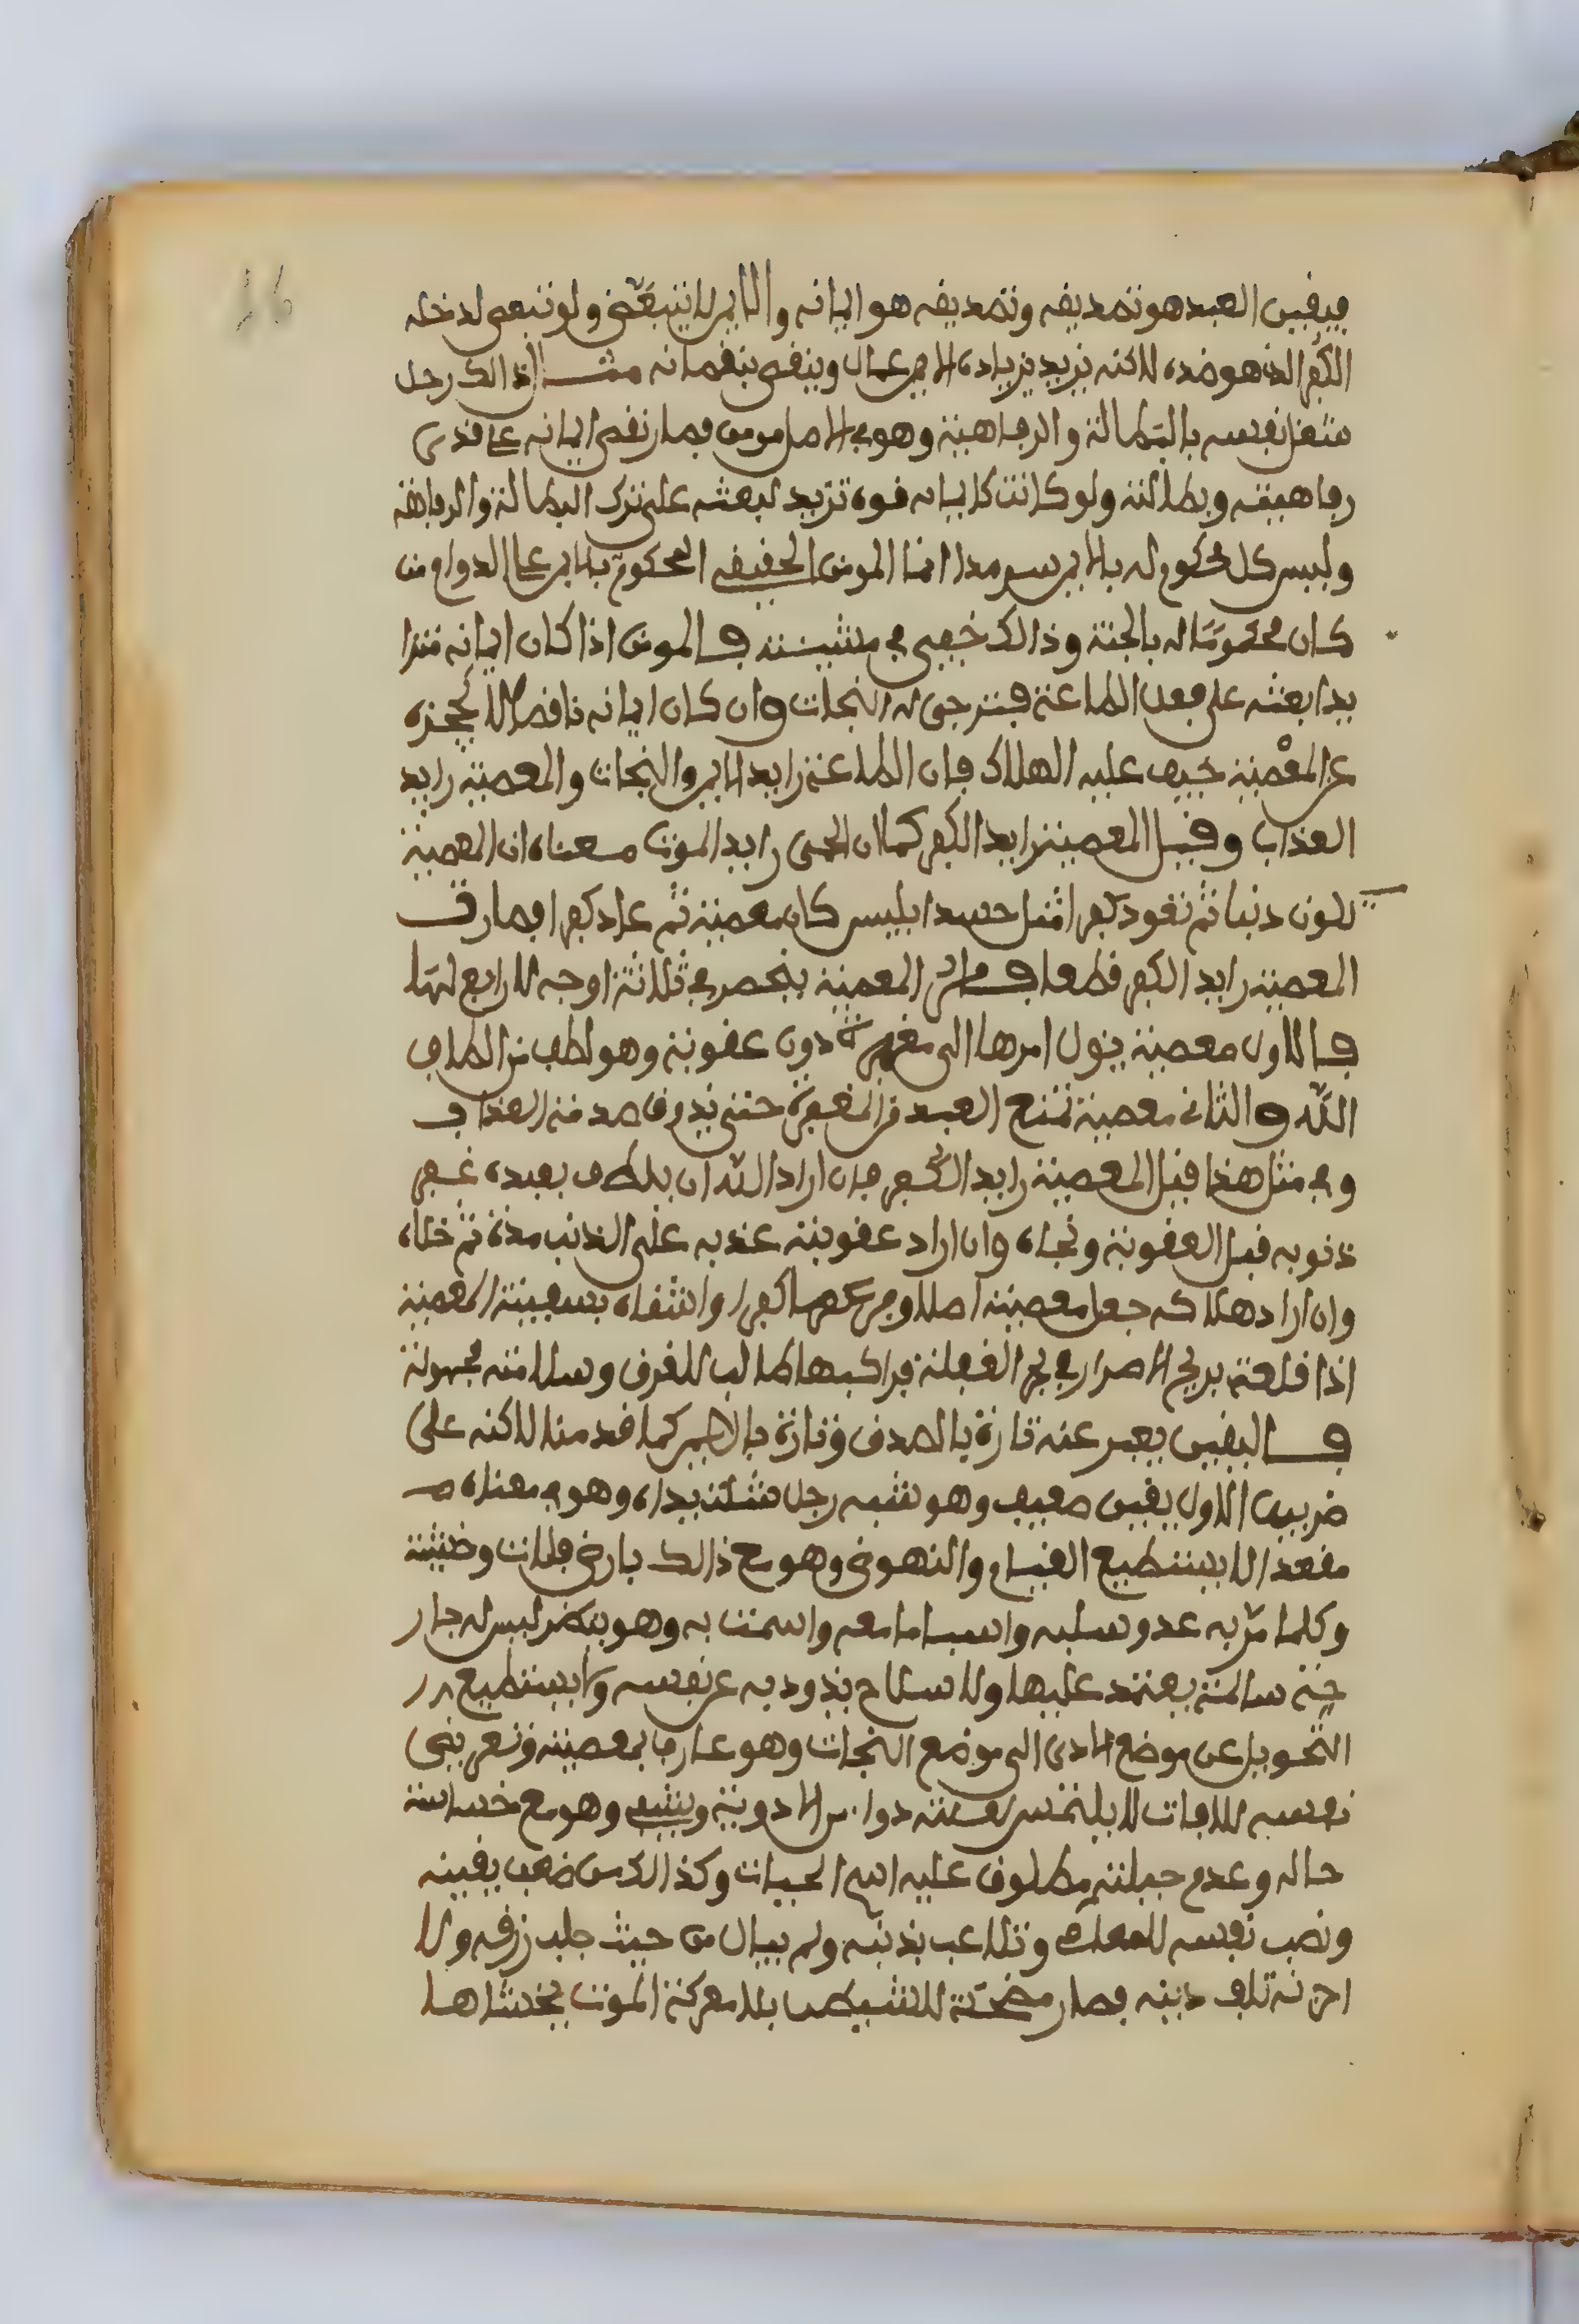 فيقين العبد هو تصديقه وتصديقه هو ايمانه والايمن لا يتبعض ولو تبعض لدخله
الكفر الذي هو ضده لاكنه يزيد بزيادة الاعمال وينقص بنقصانه مثال ذالك رجل
شغل نفسه بالبطالة والرفاهية وهو في الاصل مومن فصار نقص ايمانه على قدر
رفاهيته وبطالته ولو كانت لايمانه قوة تزيد لبعثه على ترك البطالة والرفاهة
وليس كل محكوم له بالايمن سرمدا انما المومن الحقيقي المحكوم بالايمن على الدوام من
كان محكوما له بالجنة وذالك خفي في مشيئته فالمومن اذا كان ايمانه متزا
يدا بعثه على فعل الطاعة فترجى له النجات وان كان ايمانه ناقصا لا يحجزه
عن المعصية خيف عليه الهلاك فان الطاعة رايد الايمن والنجات والمعصية رايد
العذاب وقيل المعصية رايد الكفر كما ان الحمى رايد الموت معناه ان المعصية
تكون دنبا ثم تعود كفرا مثل حسد ابليس كان معصية ثم عاد كفرا فصارت
المعصية رايد الكفر قطعا المعصية ينحصر في ثلاثة اوجه لا رابع لها
فالاول معصية يئول امرها الى مغفرة دون عقوبة وهو لطف من الطاف
الله والثاني معصية تمنع العبد من المغفرة حتى يذوق صدمة العذاب
وفي مثل هذا قيل المعصية رايد الكفر فان اراد الله ان يلطف بعبده غفر
ذنوبه قبل العقوبة ونجاه وان اراد عقوبته عذبه على الذنب مدة ثم خلاه
وان اراد هلاكه جعل معصيته اصلا وفرعها كفرا واشقاه بسفينة المعصية
اذا قلعت بريح الاصرار في بحر الغفلة فراكبها طالب للغرق وسلامته مجهولة
فاليقين يعبر عنه تارة بالصدق وتارة بالايمن كما قدمنا لاكنه على
ضربين الاول يقين ضعيف وهو شبه رجل شلت يداه وهو في معناه
مقعد الا يستطيع القيام والنهوض وهو مع ذالك بارض فلات وحشية
وكلما مر به عدو سلبه واسبا ما معه واشمت به وهو ينظر ليس له جار
حة سالمة يعتمد عليها ولا سلاح يذود به عن نفسه ولا يستطيع
التحويل عن موضع الاذى الى موضع النجات وهو عارف بمعصيته وتعريض
نفسه للافات لا يلتمس لعلته دواء من الادوية ويشفى وهو مع خساسة
حاله وعدم حيلته مطلوق عليه اسم الحيات وكذالك من ضعف يقينه
ونصب نفسه للمهلك وتلاعب بذنبه ولم يبال من حيث جلب رزقه ولا
احزنه تلاف دينه فصار مضحكة للشيطن بلا معركة الموت يخشاها